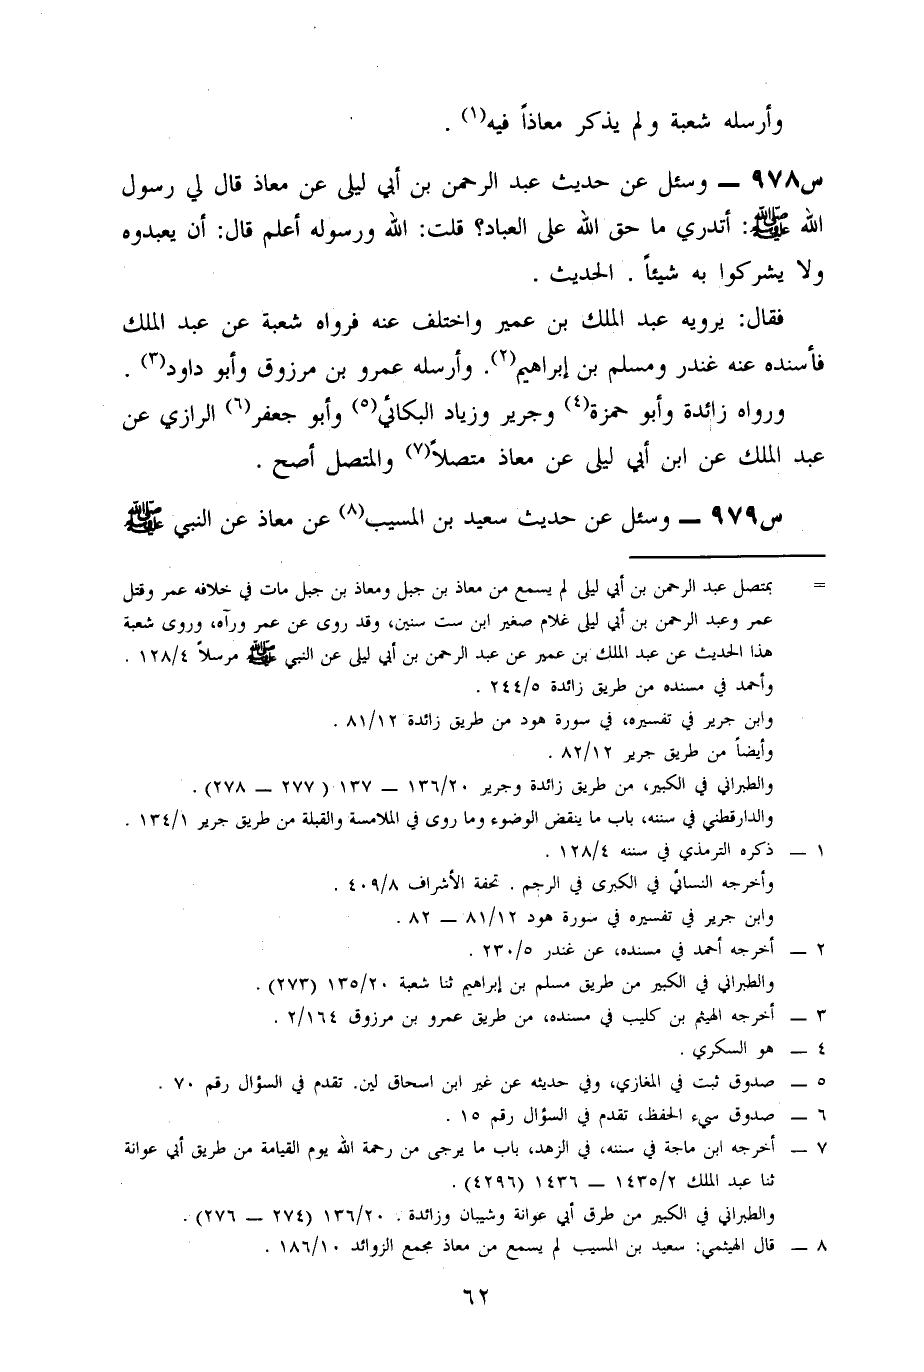 وأرسله شعبة ولم يذكر معاذاً فيه(١) .
س٩٧٨ ــ وسئل عن حديث عبد الرحمن بن أبي ليلى عن معاذ قال لي رسول
الله ﷺ: أتدري ما حق الله على العباد؟ قلت: الله ورسوله أعلم قال: أن يعبدوه
ولا يشركوا به شيئاً . الحديث .
فقال: يرويه عبد الملك بن عمير واختلف عنه فرواه شعبة عن عبد الملك
فأسنده عنه غندر ومسلم بن إبراهيم(٢). وأرسله عمرو بن مرزوق وأبو داود(٣) .
ورواه زائدة وأبو حمزة(٤) وجرير وزياد البكائي(٥) وأبو جعفر(٦) الرازي عن
عبد الملك عن ابن أبي ليلى عن معاذ متصلاً(٧) والمتصل أصح .
س٩٧٩ ــ وسئل عن حديث سعيد بن المسيب(٨) عن معاذ عن النبي ﷺ
= بمتصل عبد الرحمن بن أبي ليلى لم يسمع من معاذ بن جبل ومعاذ بن جبل مات في خلافه عمر وقتل
عمر وعبد الرحمن بن أبي ليلى غلام صغير ابن ست سنين، وقد روى عن عمر ورآه، وروى شعبة
هذا الحديث عن عبد الملك بن عمير عن عبد الرحمن بن أبي ليلى عن النبي ﷺ مرسلاً ١٢٨/٤ .
وأحمد في مسنده من طريق زائدة ٢٤٤/٥ .
وابن جرير في تفسيره، في سورة هود من طريق زائدة ٨١/١٢ .
وأيضاً من طريق جرير ٨٢/١٢ .
والطبراني في الكبير، من طريق زائدة وجرير ١٣٦/٢٠ ــ ١٣٧ (٢٧٧ ــ ٢٧٨) .
والدارقطني في سننه، باب ما ينقض الوضوء وما روى في الملامسة والقبلة من طريق جرير ١٣٤/١ .
١ ــ ذكره الترمذي في سننه ١٢٨/٤ .
وأخرجه النسائي في الكبرى في الرجم . تحفة الأشراف ٤٠٩/٨ .
وابن جرير في تفسيره في سورة هود ٨١/١٢ ــ ٨٢ .
٢ ــ أخرجه أحمد في مسنده، عن غندر ٢٣٠/٥ .
والطبراني في الكبير من طريق مسلم بن إبراهيم ثنا شعبة ١٣٥/٢٠ (٢٧٣) .
٣ ــ أخرجه الهيثم بن كليب في مسنده، من طريق عمرو بن مرزوق ٢/١٦٤ .
٤ ــ هو السكري .
٥ ــ صدوق ثبت في المغازي، وفي حديثه عن غير ابن اسحاق لين. تقدم في السؤال رقم ٧٠ .
٦ ــ صدوق سيء الحفظ، تقدم في السؤال رقم ١٥ .
٧ ــ أخرجه ابن ماجة في سننه، في الزهد، باب ما يرجى من رحمة الله يوم القيامة من طريق أبي عوانة
ثنا عبد الملك ١٤٣٥/٢ ــ ١٤٣٦ (٤٢٩٦) .
والطبراني في الكبير من طرق أبي عوانة وشيبان وزائدة . ١٣٦/٢٠ (٢٧٤ ــ ٢٧٦) .
٨ ــ قال الهيثمي: سعيد بن المسيب لم يسمع من معاذ مجمع الزوائد ١٨٦/١٠ .
٦٢